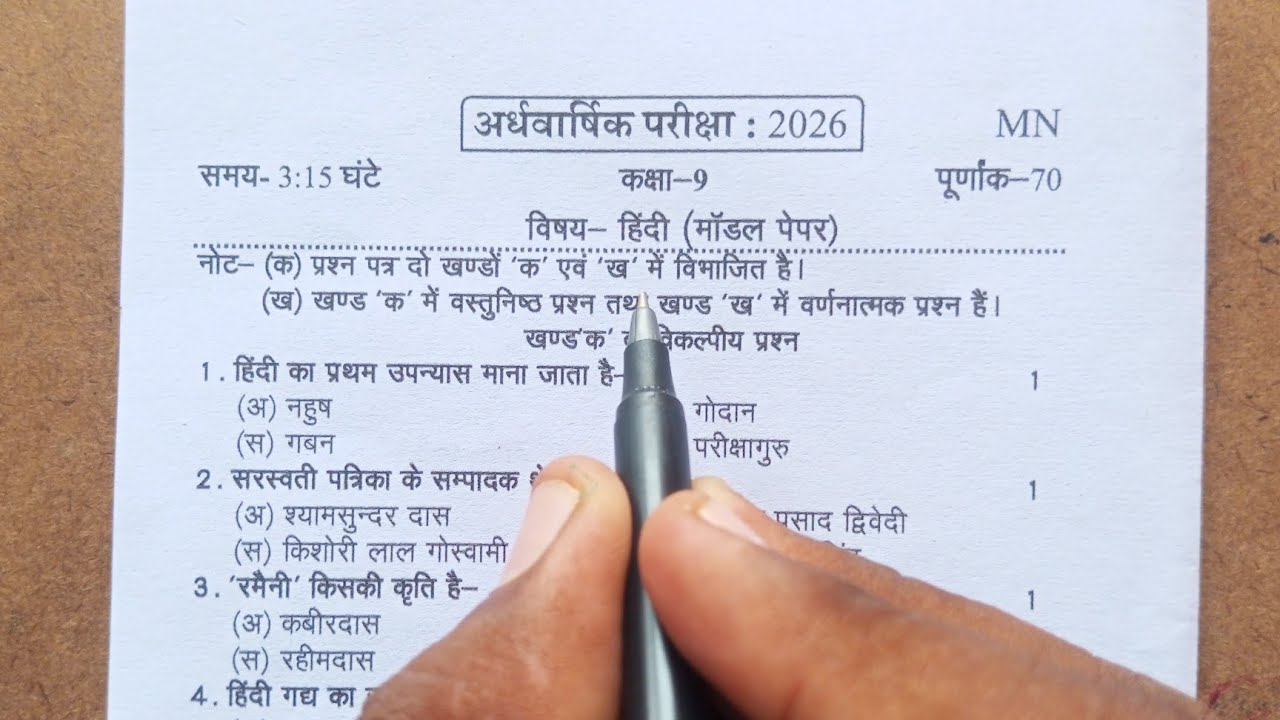 अर्धवार्षिक परीक्षा : 2026 MN
समय- 3:15 घंटे कक्षा–9 पूर्णांक–70
विषय– हिंदी (मॉडल पेपर)
नोट– (क) प्रश्न पत्र दो खण्डों 'क' एवं 'ख' में विभाजित है।
(ख) खण्ड 'क' में वस्तुनिष्ठ प्रश्न तथा खण्ड 'ख' में वर्णनात्मक प्रश्न हैं।
खण्ड'क' प्रश्न
1. हिंदी का प्रथम उपन्यास माना जाता है– 1
(अ) नहुष गोदान
(स) गबन परीक्षागुरु
2. सरस्वती पत्रिका के सम्पादक 1
(अ) श्यामसुन्दर दास द्विवेदी
(स) किशोरी लाल गोस्वामी
3. 'रमैनी' किसकी कृति है– 1
(अ) कबीरदास
(स) रहीमदास
4. हिंदी गद्य का